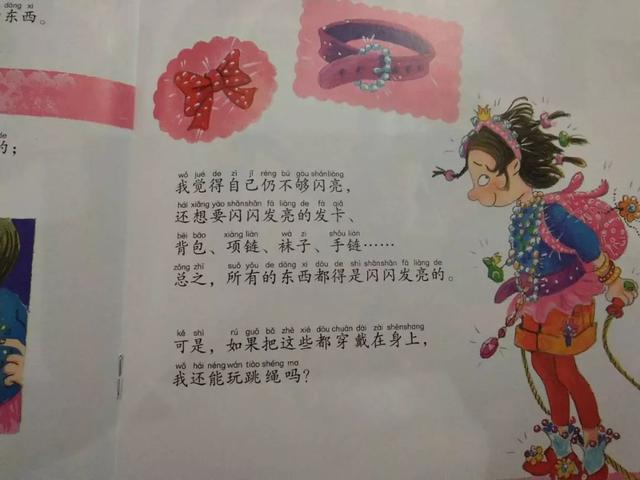 dōng xi
东西。
de
的；
wǒ jué de zì jǐ réng bú gòu shǎnliàng
我觉得自己仍不够闪亮，
hái xiǎng yào shǎnshǎn fā liàng de fà qiǎ
还想要闪闪发亮的发卡、
bēi bāo xiàng liàn wà zi shǒu liàn
背包、项链、袜子、手链……
zǒng zhī suǒ yǒu de dōng xi dōu děi shì shǎnshǎn fā liàng de
总之，所有的东西都得是闪闪发亮的。
kě shì rú guǒ bǎ zhè xiē dōu chuān dài zài shēnshang
可是，如果把这些都穿戴在身上，
wǒ hái néng wán tiào shéng ma
我还能玩跳绳吗？